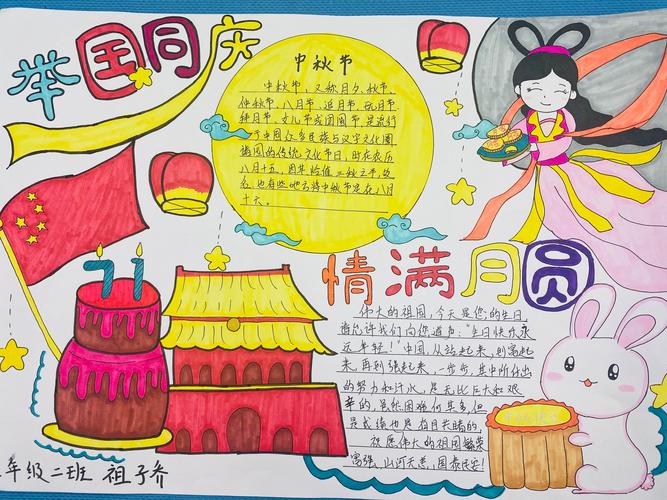 举国同庆
中秋节
中秋节,又称月夕、秋节、
仲秋节、八月节、追月节、玩月节
拜月节、女儿节或团圆节,是流行
于中国众多民族与汉字文化圈
诸国的传统文化节日,时在农历
八月十五,因其恰值三秋之半,故
名,也有些地方将中秋节定在八月
十六。
71
情满月圆
伟大的祖国,今天是您的生日,
请允许我们向您道声:"生日快乐,永
远年轻!"中国,从站起来,到富起
来,再到强起来,一步步,其中所付出
的努力和汗水,是无比巨大和艰
辛的,虽然困难何其多,但
是成绩也是有目共睹的。
祝愿伟大的祖国繁荣
富强,山河无恙,国泰民安!
年级二班 祖子